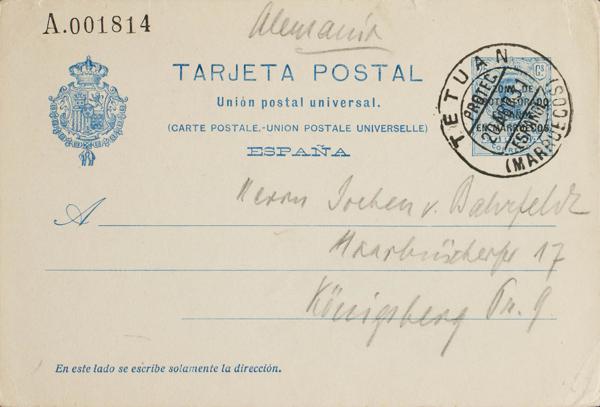 A.001814
Alemania
TARJETA POSTAL
Unión postal universal.
(CARTE POSTALE.-UNION POSTALE UNIVERSELLE)
ESPAÑA
TETUAN
(MARRUECOS)
PROTEC
ESPAÑOL
Cs
ZONA DE
PROTECTORADO
ESPAÑOL
EN MARRUECOS
CORREOS
A
Herrn Jochen v. Bahrfeldt
17
Königsberg Pr. 9
En este lado se escribe solamente la dirección.